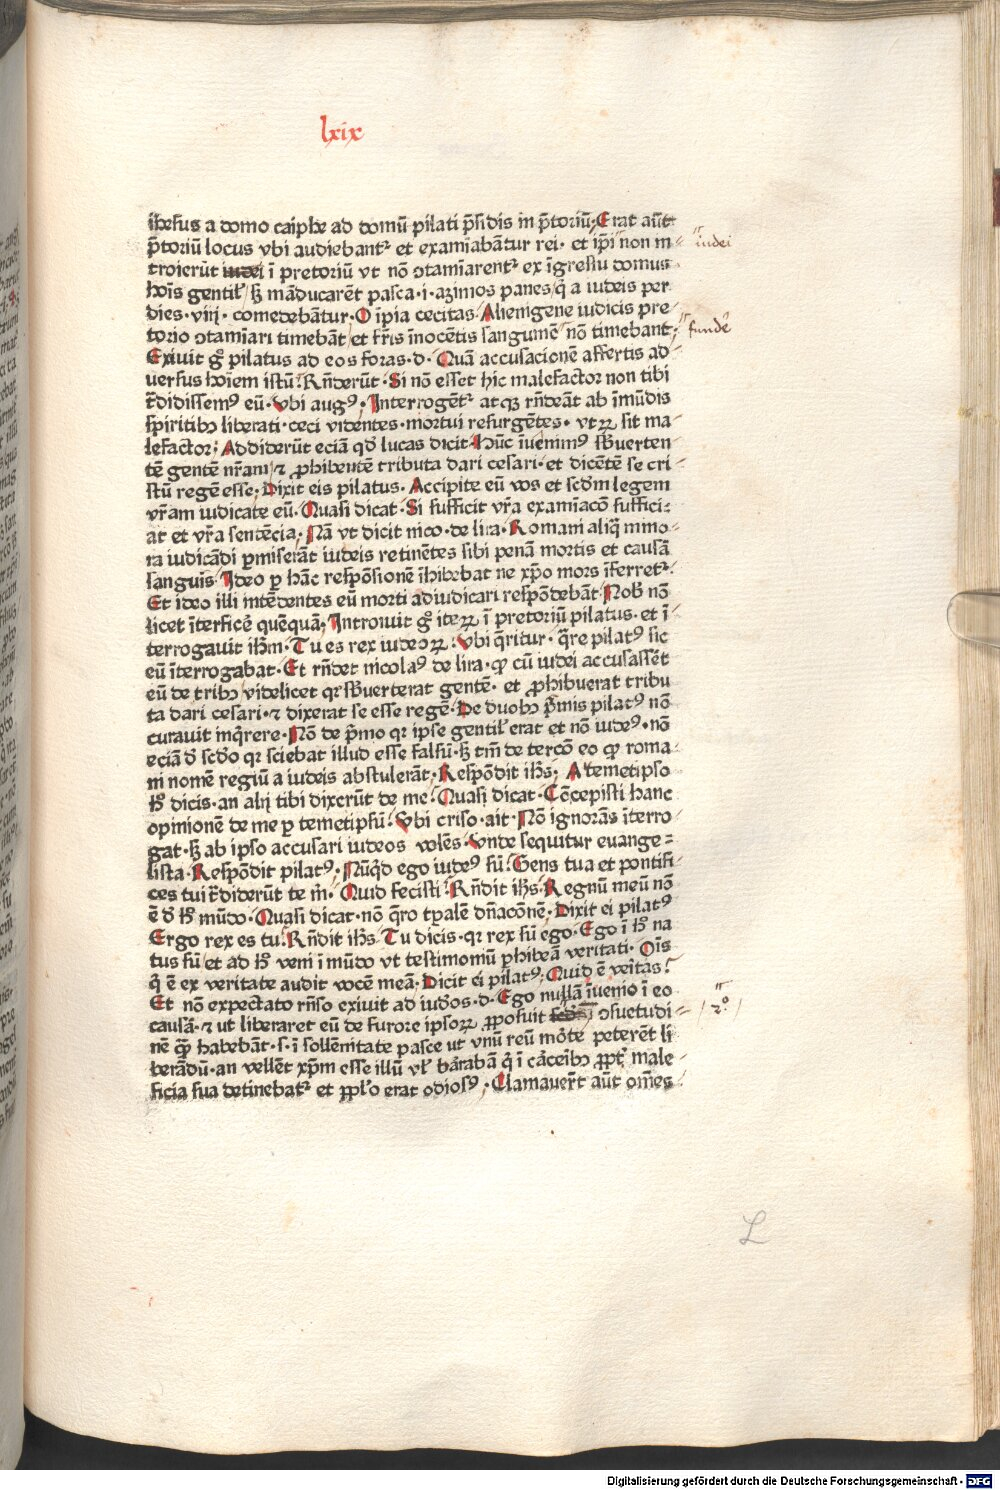 lxix
ihesus a domo caiphe ad domū pilati p̄sidis in p̄toriū. Erat aūt
p̄toriū locus vbi audiebantᷣ et examīabāntur rei. et ip̄i non in-
iudei
troierūt iudei ī pretoriū vt nō ꝯtamīarentᷣ ex īgressu domus
hoīs gentil' / ꝫ māducarēt pasca .i. azimos panes q̄ a iudeis per
dies .viij. comedebāntur. O īpia cecitas Alienigene iudicis pre
torio ꝯtamīari timebāt / et fr̄is īnocētis sanguinē nō timebant /
fundē
Exiuit gͦ pilatus ad eos foras .d. Quā accusacionē affertis ad
uersus hoīem istū? Rn̄derūt. Si nō esset hic malefactor non tibi
t̄didissemꝰ eū. Vbi augꝰ. Interrogētᷣ atqꝫ rn̄deāt ab īmūdis
spiritibꝫ liberati. ceci videntes. mortui resurgētes. vtꝝ sit ma-
lefactor; Addiderūt eciā qd̄ lucas dicit. Hūc īuenimꝰ sb̄uerten-
tē gentē nr̄am / ⁊ ꝓhibentē tributa dari cesari. et dicētē se cri-
stū regē esse. Dixit eis pilatus. Accipite eū vos et scd̄m legem
vr̄am iudicate eū. Quasi dicat. Si sufficit vr̄a examīacō suffici-
at et vr̄a sentēcia. Nā vt dicit nico. de lira. Romani aliq̄ mino-
ra iudicādi ꝑmiserāt iudeis retinētes sibi penā mortis et causā
sanguīs. Ideo ꝑ hāc respōsionē īhibebat ne xp̄o mors īferretᷣ.
Et ideo illi intēdentes eū morti adiudicari respōdebāt. Nob̄ nō
licet īterficē quēquā; Introiuit gͦ iteꝝ ī pretoriū pilatus. et ī-
terrogauit ih̄m. Tu es rex iudeoꝝ. Vbi q̄ritur. q̄re pilatꝰ sic
eū īterrogabat. Et rn̄det nicolaꝰ de lira. ꝙ cū iudei accusassēt
eū de tribꝫ videlicet qꝛ sb̄uerterat gentē. et ꝓhibuerat tribu
ta dari cesari. ⁊ dixerat se esse regē. De duobꝫ p̄mis pilatꝰ nō
curauit inq̄rere. Nō de p̄mo qꝛ ipse gentil' erat et nō iudeꝰ. nō
eciā d̄ scd̄o qꝛ sciebat illud esse falsū. ꝫ tm̄ de tercō eo ꝙ roma-
ni nomē regiū a iudeis abstulerāt. Respōdit ih̄s; A temetipso
h̄ dicis. an alij tibi dixerūt de me? Quasi dicat. Cōcepisti hanc
opinionē de me ꝑ temetipsū? Vbi criso. ait. Nō ignorās īterro-
gat. ꝫ ab ipso accusari iudeos volēs. Vnde sequitur euange-
lista. Respōdit pilatꝰ. Nūq̄d ego iudeꝰ sū? Gens tua et pontifi-
ces tui t̄diderūt te m̄. Quid fecisti? Rn̄dit ih̄s. Regnū meū nō
ē d̄ h̄ mūdo. Quasi dicat. nō q̄ro tp̄alē dn̄acōnē. Dixit ei pilatꝰ
Ergo rex es tu. Rn̄dit ih̄s. Tu dicis. qꝛ rex sū ego. Ego ī h̄ na
tus sū / et ad h̄ veni ī mūdo vt testimoniū ꝑhibeā veritati. Oīs
q̄ ē ex veritate audit vocē meā. Dicit ei pilatꝰ. Quid ē veītas?
Et nō expectato rn̄so exiuit ad iud̄os .d. Ego nullā īuenio ī eo
causā. ⁊ ut liberaret eū de furore ipsoꝝ ꝓposuit ꝯsuetudi-
2o
nē quā habebāt .s. ī sollēnitate pasce ut vnū reū mōte peterēt li
berādū. an vellēt xp̄m esse illū vl' bārabā q̄ ī cāceibꝫ ꝓpt̄ male-
ficia sua detinebatᷣ et pplo erat odiosꝰ. Clamauer̄t aūt om̄es
L
Digitalisierung gefördert durch die Deutsche Forschungsgemeinschaft - DFG